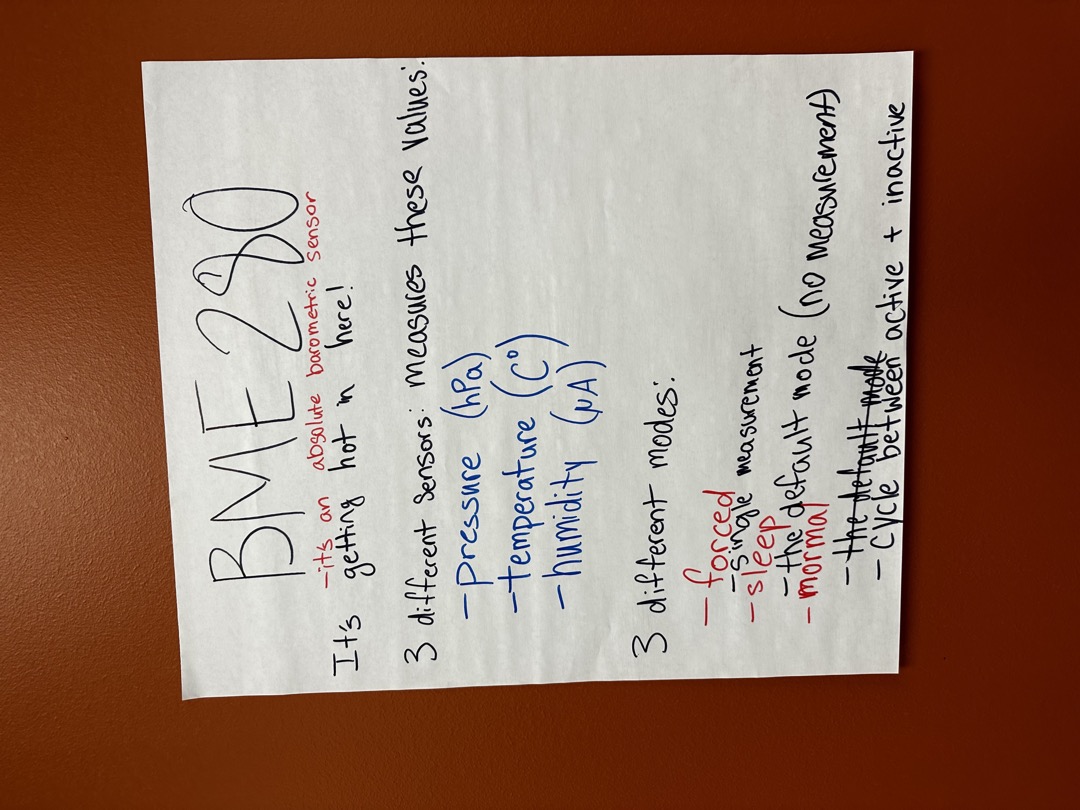 BME280
-it's an absolute barometric sensor
It's getting hot in here!
3 different sensors: measures these values:
- pressure (hPa)
- temperature (C°)
- humidity (μA)
3 different modes:
- forced
- single measurement
- sleep
- the default mode (no measurement)
- mormal
- the default mode
- cycle between active + inactive